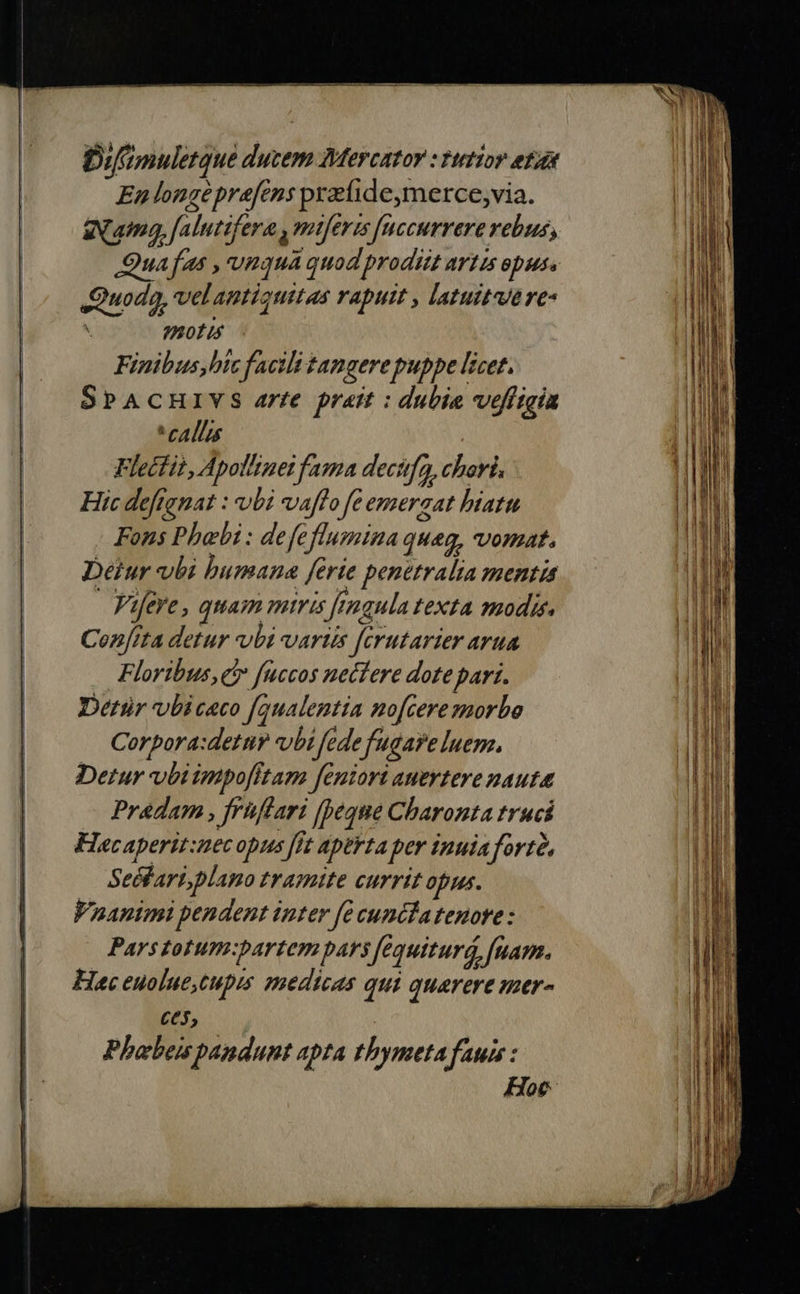 Diſſimuletque ducem Mercator : tutior etāt
En longè preſens præſide,merce,via.
Namq, ſalutifera, miſeris ſuccurrere rebus,
Qua fas, vnquā quod prodiit artis opus.
Quodq, vel antiquitas rapuit, latuitve re-
motis
Finibus,hic facili tangere puppe licet.
SPACHIVS arte preit : dubia veſtigia
callis
Flectit, Apollinei fama decúsq, chori.
Hic deſignat : vbi vaſto ſe emergat hiatu
Fons Phœbi: de ſe flumina queq, vomat.
Detur vbi humanæ ſerie penetralia mentis
Viſere, quam miris ſingula texta modis.
Conſita detur vbi variis ſcrutarier arua
Floribus, & ſuccos nectere dote pari.
Detur vbi cæco ſqualentia noſcere morbo
Corpora:detur vbi ſede fugare luem.
Detur vbi impoſitam ſeniori auertere nautæ
Prædam, fruſtari ſpeque Charonta truci
Hæc aperit:nec opus ſit aperta per inuia fortè,
Sectari,plano tramite currit opus.
Vnanimi pendent inter ſe cuncta tenore:
Pars totum:partem pars ſequiturq, ſuam.
Hæc euolue,cupis medicas qui quærere mer-
ces,
Phœbeis pandunt apta thymeta fauis :
Hoc